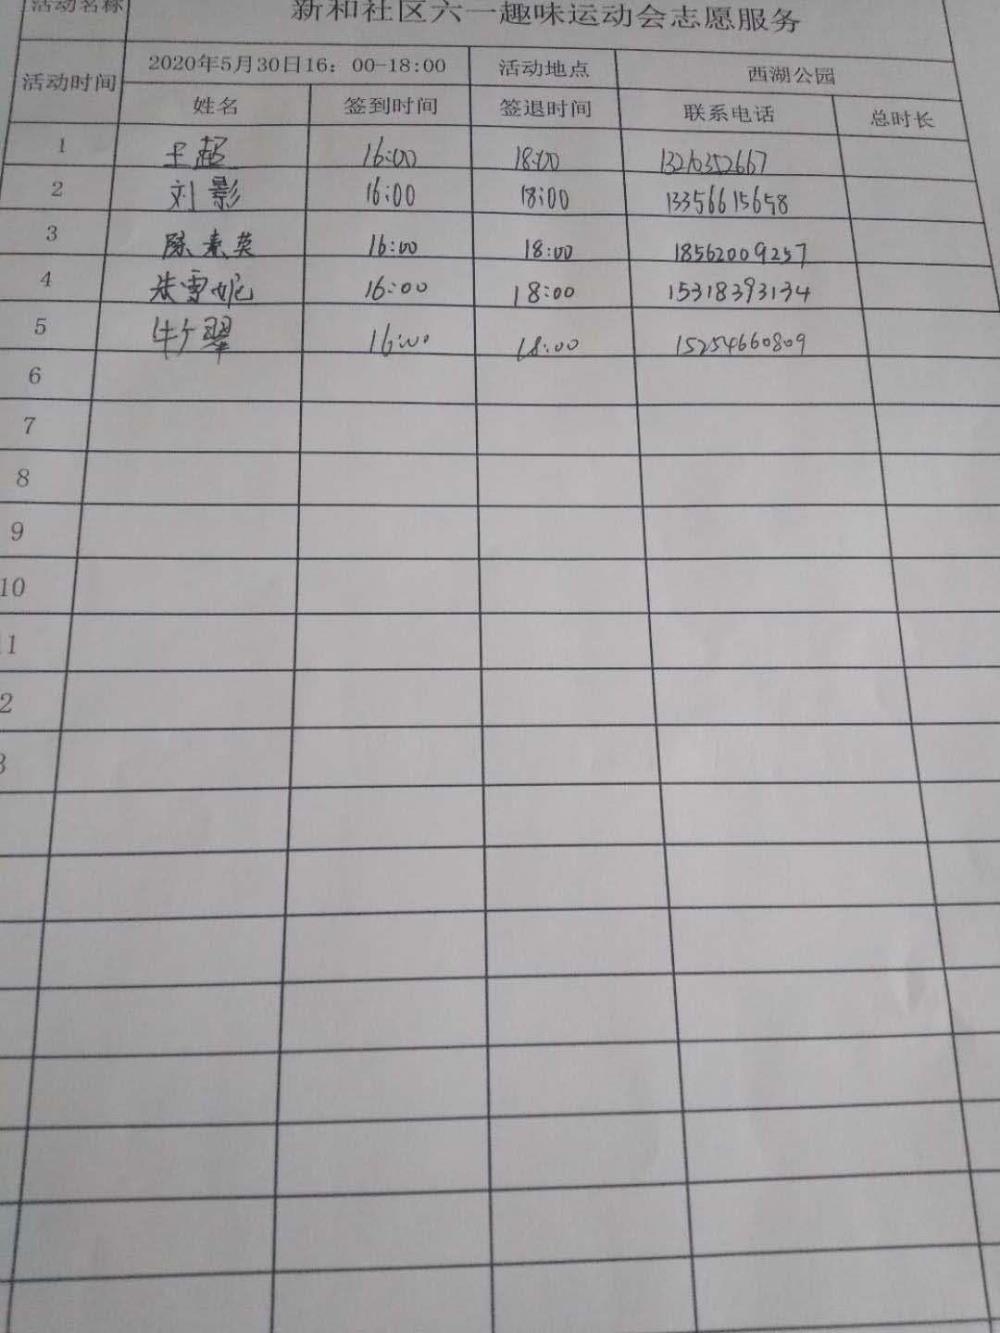 活动名称 新和社区六一趣味运动会志愿服务
活动时间 2020年5月30日16：00-18:00 活动地点 西湖公园
姓名 签到时间 签退时间 联系电话 总时长
1 王超 16:00 18:00 13210352667
2 刘影 16:00 18:00 13356615658
3 陈素英 16:00 18:00 18562009257
4 朱雪妮 16:00 18:00 15318393134
5 牛翠 16:00 18:00 15254660809
6
7
8
9
10
11
2
3